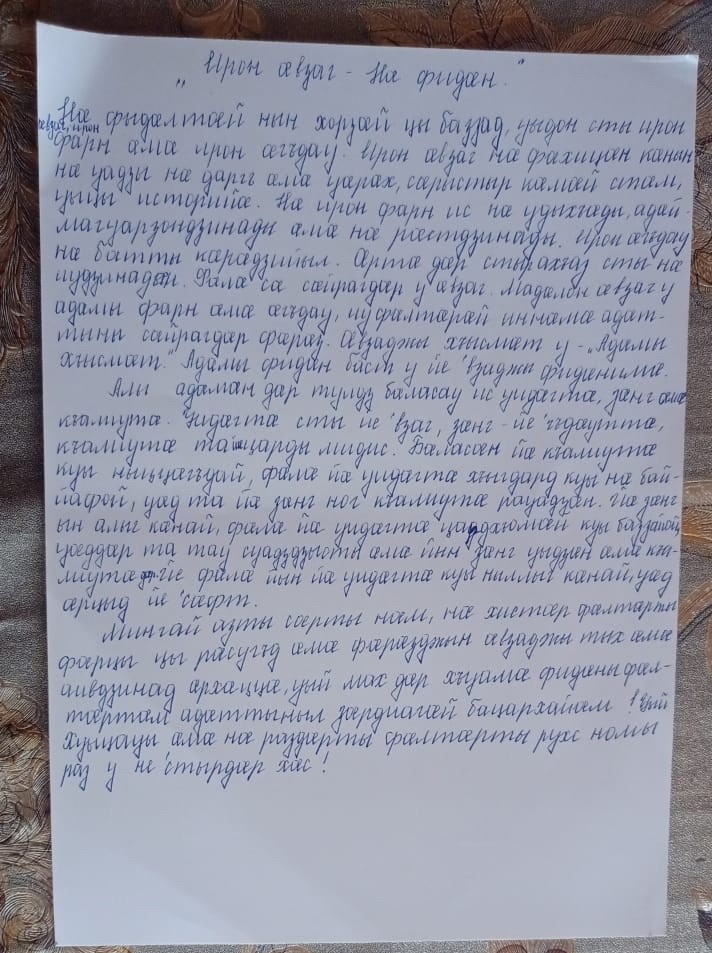 „Ирон ӕвзаг - Нӕ фидӕн."
Нӕ фыдӕлтӕй нын хорзӕй цы баззад, уыдон сты ирон
ӕвзаг, ирон
фарн ӕмӕ ирон ӕгъдау. Ирон ӕвзаг нӕ фӕхицӕн кӕнын
нӕ уадзы нӕ даргъ ӕмӕ уӕрӕх, сӕрыстыр кӕмӕй стӕм,
уыцы историйӕ. Нӕ ирон фарн ис нӕ удыхъӕды, адӕй-
магуарзондзинады ӕмӕ нӕ рӕстдзинады. Ирон ӕгъдау
нӕ бӕтты кӕрӕдзийыл. Ӕртӕ дӕр стыр ахъаз сты нӕ
иудзинадӕн. Фӕлӕ сӕ сӕйрагдӕр у ӕвзаг. Мадӕлон ӕвзаг у
адӕмы фарн ӕмӕ ӕгъдау, иу фӕлтӕрӕй иннӕмӕ адӕт-
тыны сӕйрагдӕр фӕрӕз. Ӕвзаджы хъысмӕт у - „Адӕмы
хъысмӕт." Адӕмы фидӕн баст у йе 'взаджы фидӕнимӕ.
Алы адӕмӕн дӕр тулдз бӕласау ис уидӕгтӕ, зӕнг ӕмӕ
къалиутӕ. Уидӕгтӕ сты йе 'взаг, зӕнг - йе 'гъдӕуттӕ,
къалиутӕ та царды мидис. Бӕласӕн йӕ къалиутӕ
куы ныццӕгъдай, фӕлӕ йӕ уидӕгтӕ хъыгдард куы нӕ бай-
йафой, уӕд та йӕ зӕнг ног къалиутӕ рауадзӕн. Йӕ зӕнг
ын алыг кӕнай, фӕлӕ йӕ уидӕгтӕ цӕрдхъомӕй куы баззайой,
уӕддӕр та тау суадздзысты ӕмӕ йын зӕнг уыдзӕн ӕмӕ къа-
лиутӕ йе фӕлӕ йын йӕ уидӕгтӕ куы ныллыг кӕнай, уӕд
ӕрцыд йе 'сӕфт.
Мингай азты сӕрты нӕм, нӕ хистӕр фӕлтӕрты
фӕрцы цы рӕсугъд ӕмӕ фӕрӕзджын ӕвзаджы тых ӕмӕ
аивдзинад ӕрхӕццӕ, уый мах дӕр хъуамӕ фидӕны фӕл-
тӕртӕм адӕттыныл зӕрдиагӕй бацархайӕм! Уый
Хуыцауы ӕмӕ нӕ рӕздӕрты фӕлтӕрты рухс номы
раз у не 'стырдӕр хӕс!